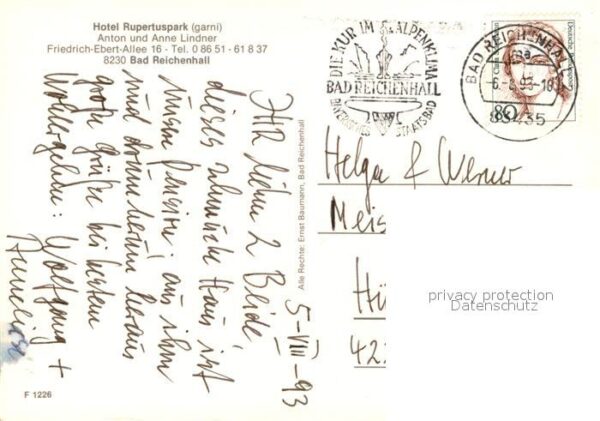 Hotel Rupertuspark (garni)
Anton und Anne Lindner
Friedrich-Ebert-Allee 16 - Tel. 0 86 51 - 61 8 37
8230 Bad Reichenhall
DIE KUR IM ALPENKLIMA
BAD REICHENHALL
BAYERISCHES STAATSBAD
BAD REICHENHALL
-6.-8.93-18
83435
Deutsche Bundespost
80
Ihr lieben 2 Beide,
dieses schmucke Haus ist
unsere Pension: aus ihm
und drum herum heraus
große Grüße bei bestem
Wohlergehen: Wolfgang +
Anneliese
5-VIII-93
Alle Rechte: Ernst Baumann, Bad Reichenhall
Helga & Werner
Meis
Hü
422
privacy protection
Datenschutz
F 1226